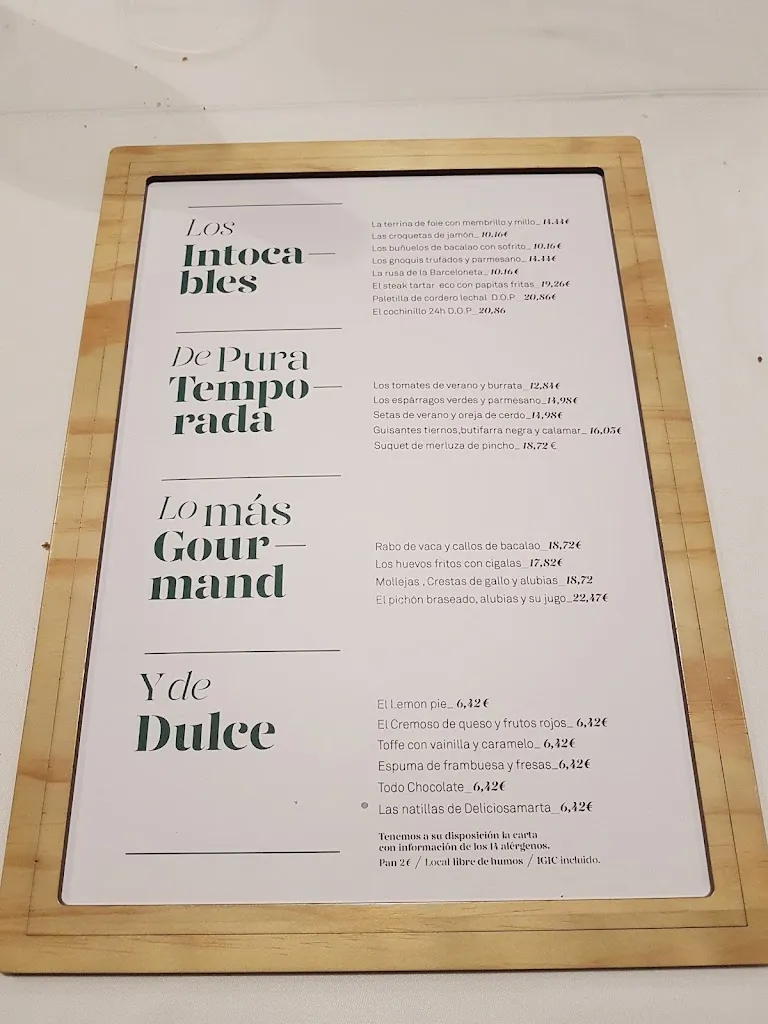 Los
Intoca—
bles
La terrina de foie con membrillo y millo_ 14.44€
Las croquetas de jamón_ 10.16€
Los buñuelos de bacalao con sofrito_ 10.16€
Los gnoquis trufados y parmesano_ 14.44€
La rusa de la Barceloneta_ 10.16€
El steak tartar eco con papitas fritas_19,26€
Paletilla de cordero lechal D.O.P_ 20,86€
El cochinillo 24h D.O.P_ 20,86
De Pura
Tempo—
rada
Los tomates de verano y burrata_12,84€
Los espárragos verdes y parmesano_14,98€
Setas de verano y oreja de cerdo_14,98€
Guisantes tiernos,butifarra negra y calamar_ 16,05€
Suquet de merluza de pincho_ 18,72 €
Lo más
Gour—
mand
Rabo de vaca y callos de bacalao_18,72€
Los huevos fritos con cigalas_ 17,82€
Mollejas , Crestas de gallo y alubias_ 18,72
El pichón braseado, alubias y su jugo_22,47€
Y de
Dulce
El Lemon pie_ 6,42€
El Cremoso de queso y frutos rojos_ 6,42€
Toffe con vainilla y caramelo_ 6,42€
Espuma de frambuesa y fresas_6,42€
Todo Chocolate_6,42€
Las natillas de Deliciosamarta_6,42€
Tenemos a su disposición la carta
con información de los 14 alérgenos.
Pan 2€ / Local libre de humos / IGIC incluido.